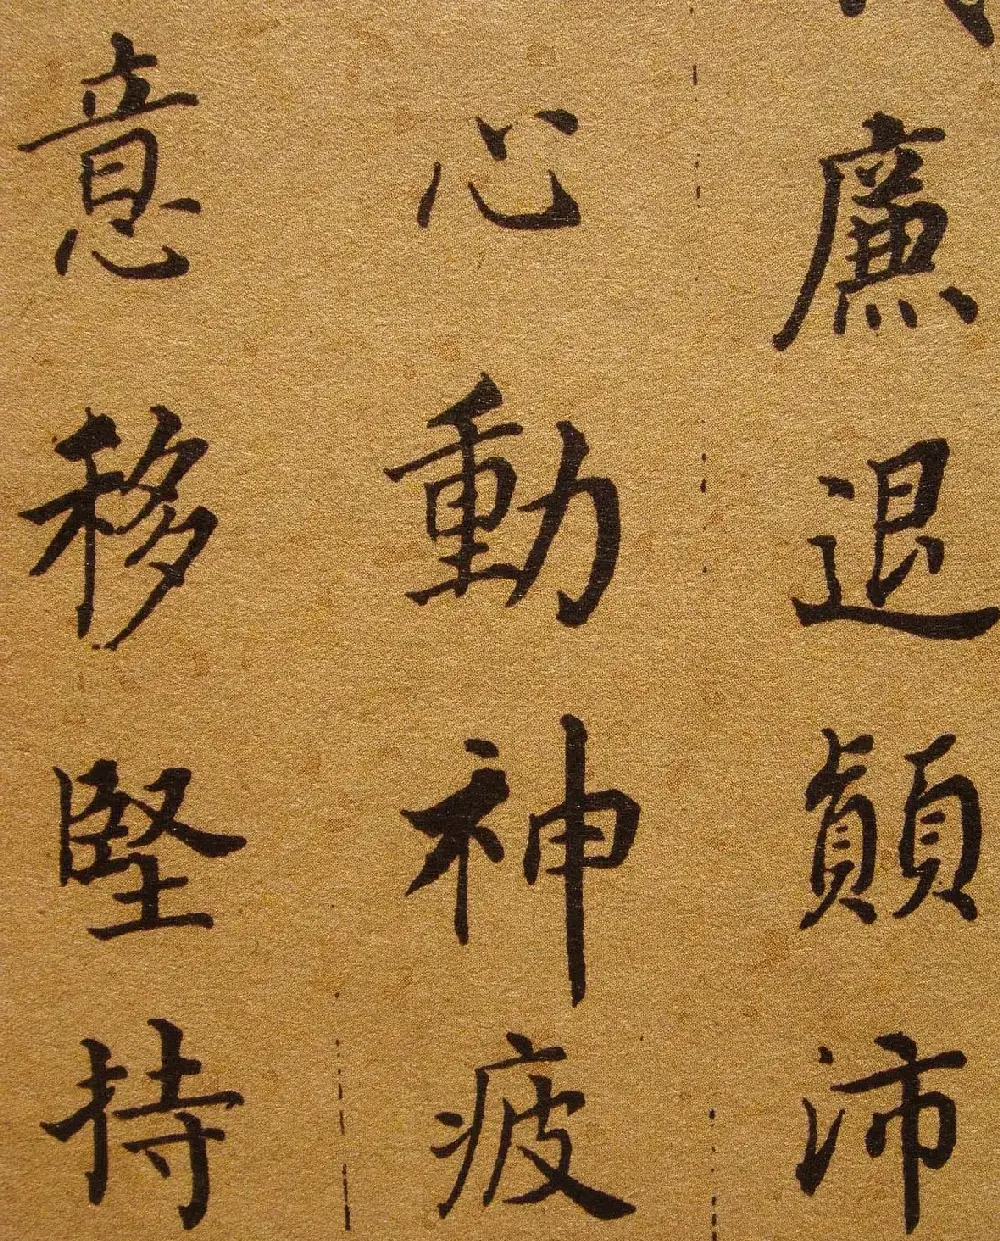 廉退顛沛
心動神疲
意移堅持